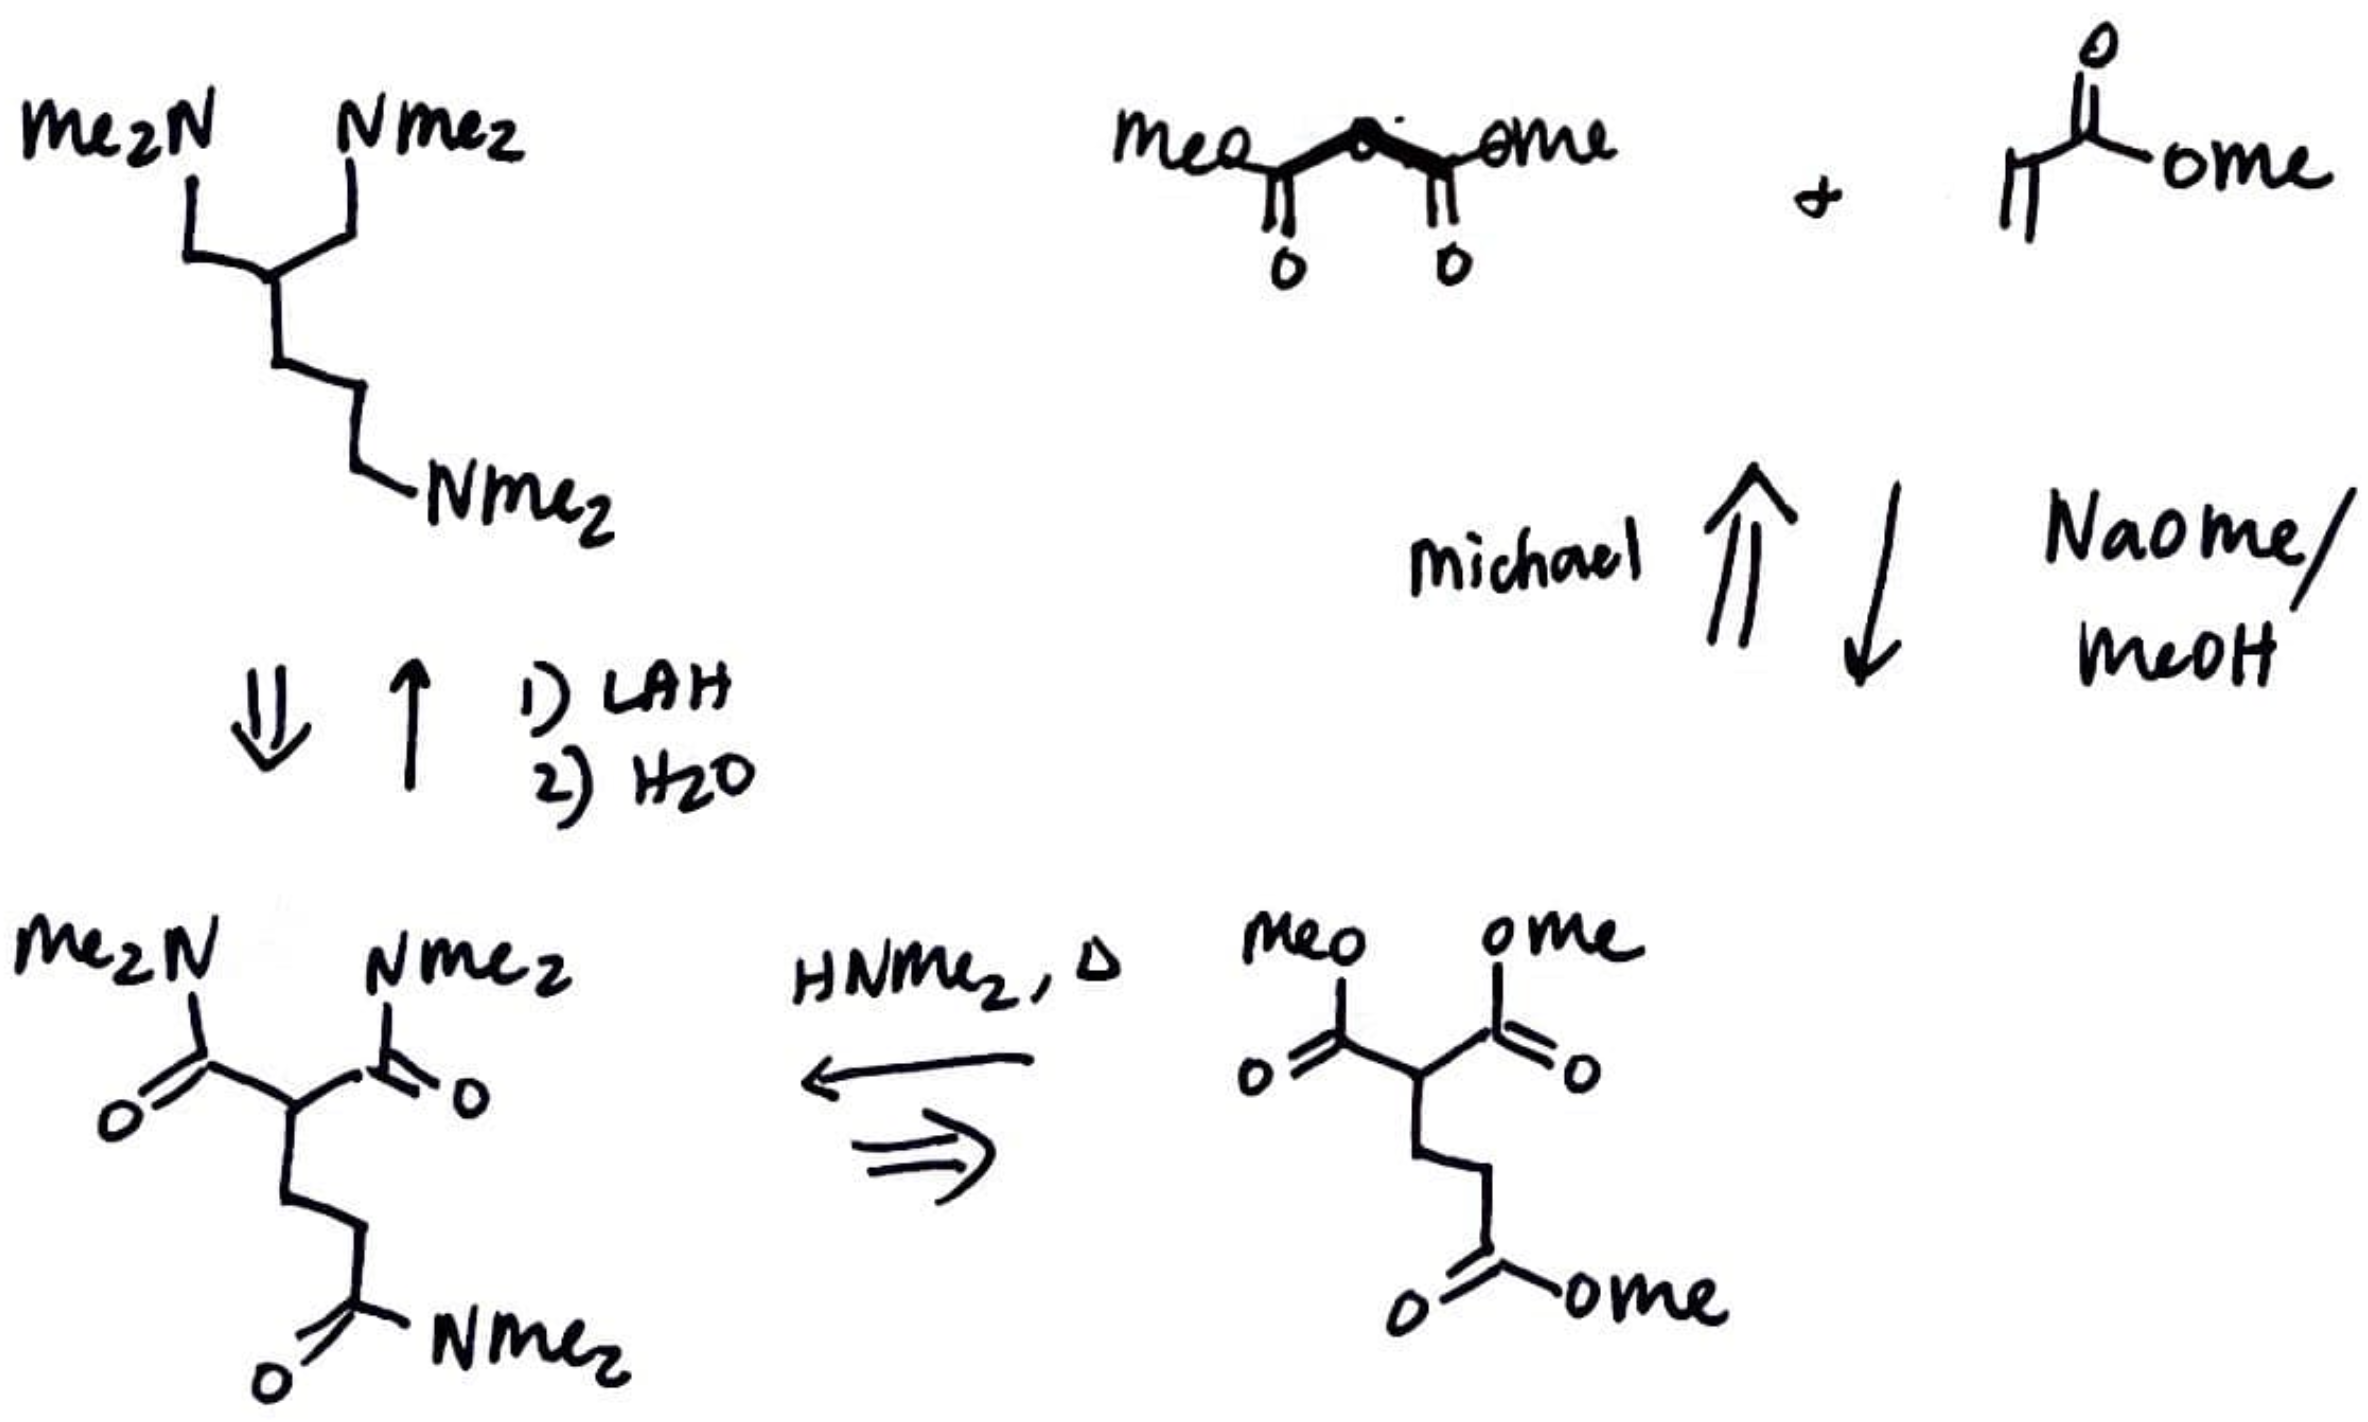 Me2N NMe2
NMe2
MeO OMe
O O
+
O
OMe
1) LAH
2) H2O
Michael
NaOMe/
MeOH
Me2N NMe2
O O
O NMe2
HNMe2, Δ
MeO OMe
O O
O OMe